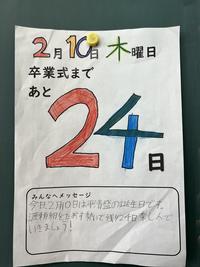 2月10日 木曜日
卒業式まで
あと
24日
みんなへメッセージ
今日2月10日は平清盛の誕生日です。
源頼朝をたおす勢いで残り24日楽しんで
いきましょう!